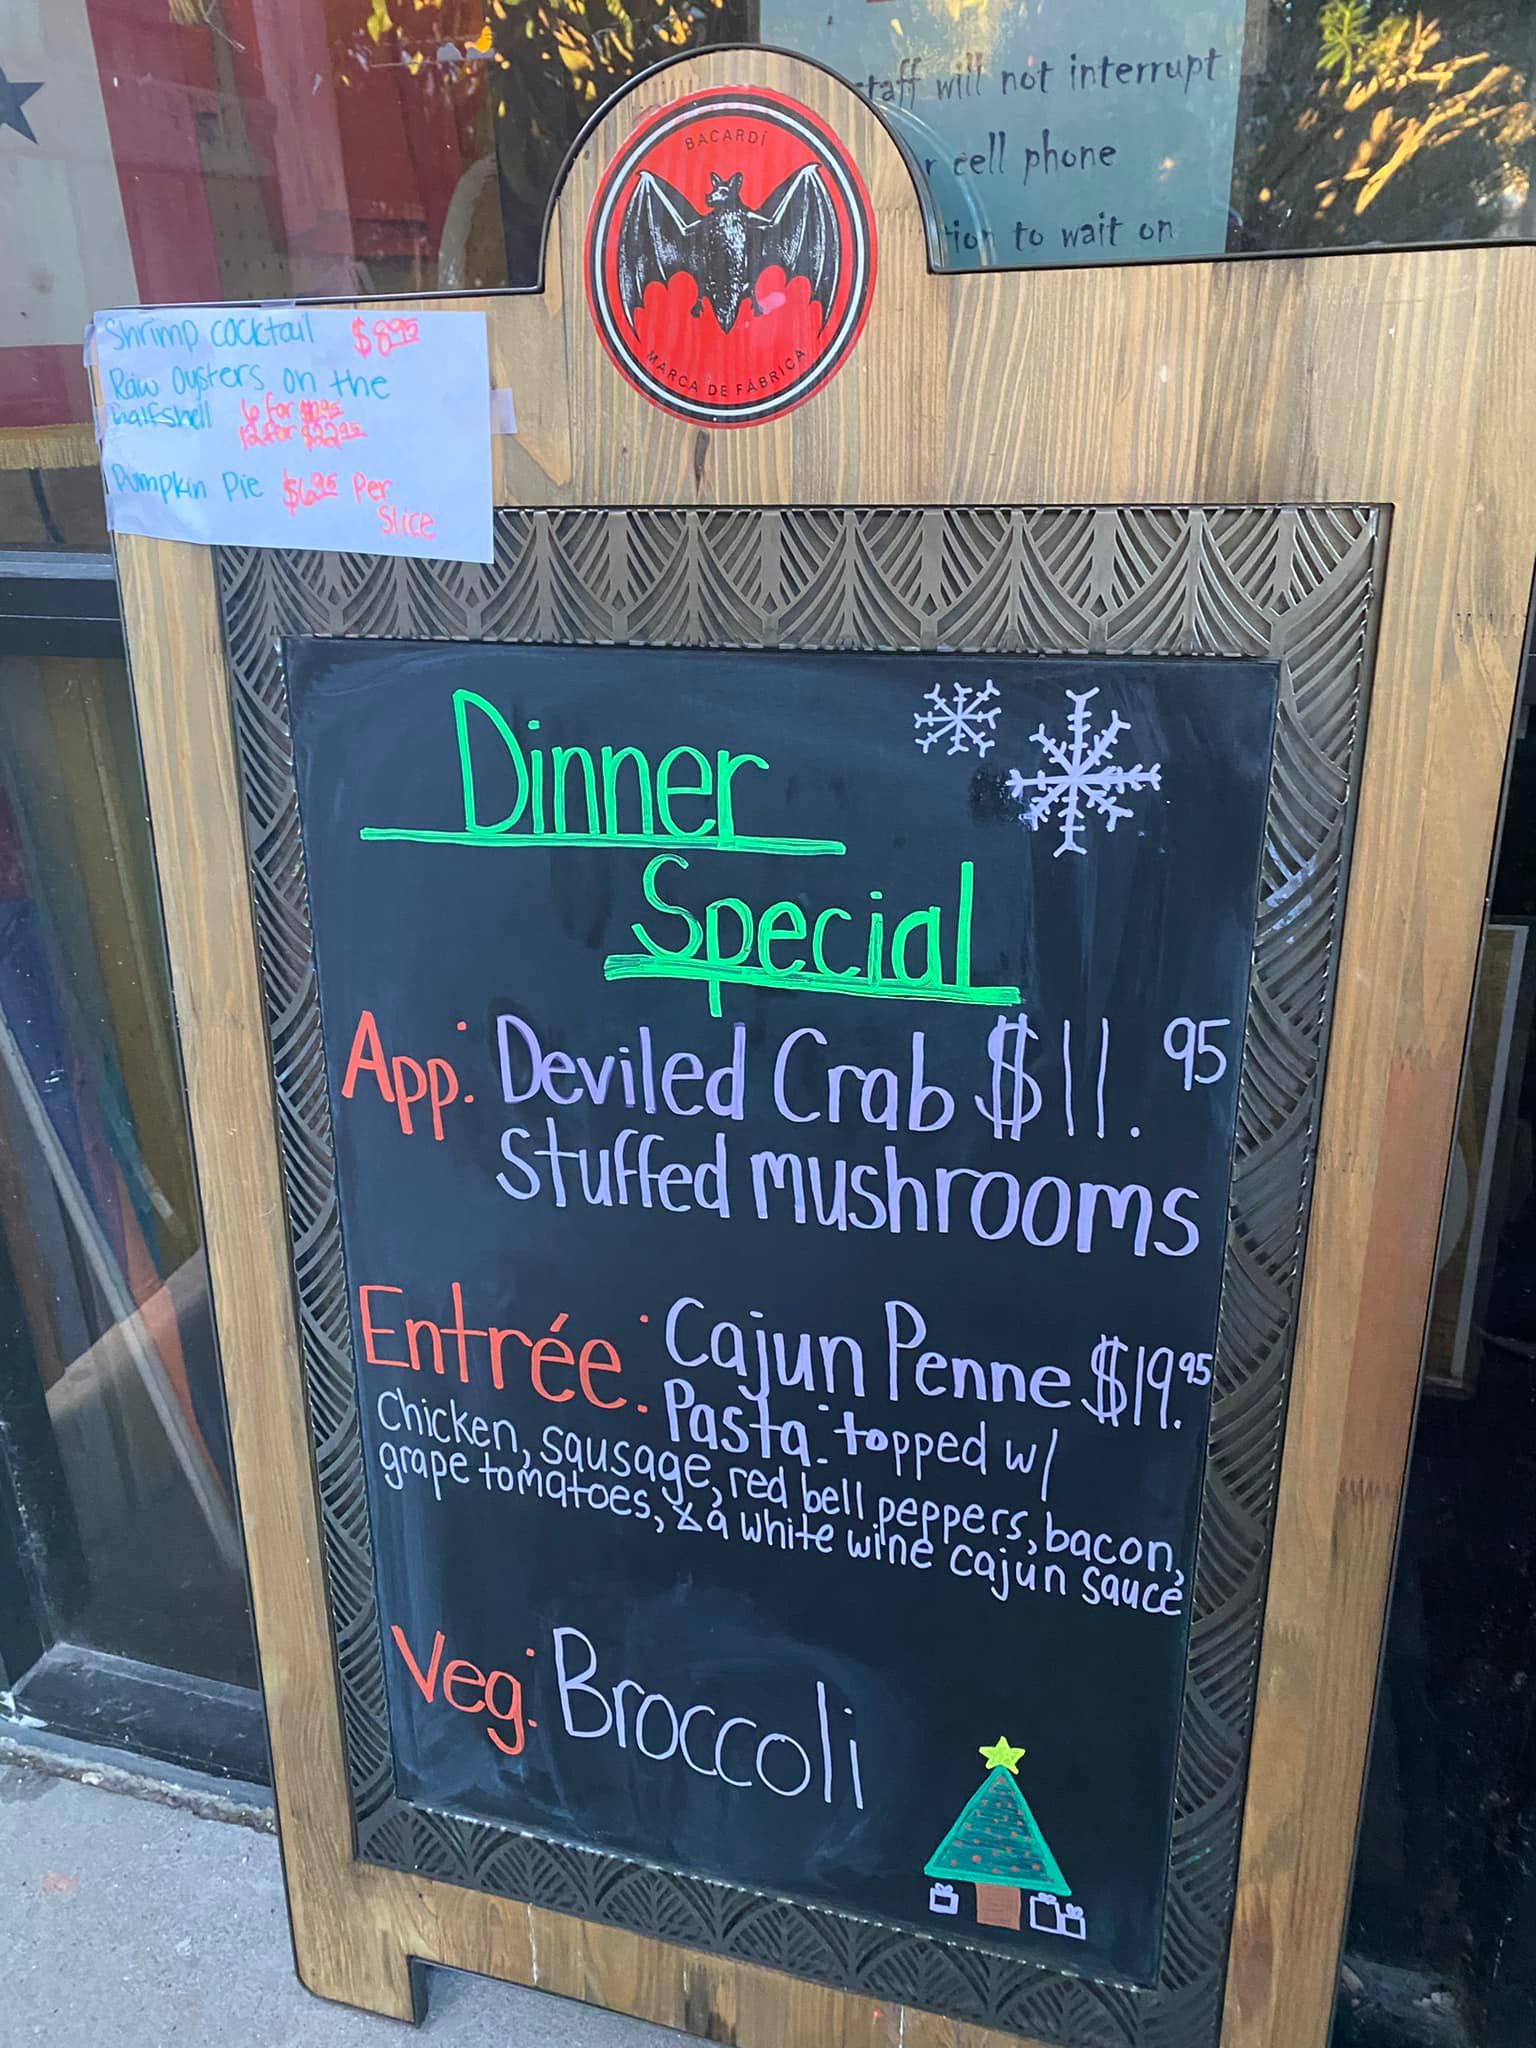 staff will not interrupt
cell phone
to wait on
BACARDÍ
MARCA DE FÁBRICA
Shrimp cocktail $8.95
Raw Oysters on the
halfshell 6 for
12 for $22.95
Pumpkin Pie $6.95 Per
Slice
Dinner
Special
App: Deviled Crab $11.95
stuffed mushrooms
Entrée: Cajun Penne $19.95
Pasta: topped w/
Chicken, sausage, red bell peppers, bacon,
grape tomatoes, & a white wine cajun sauce
Veg: Broccoli